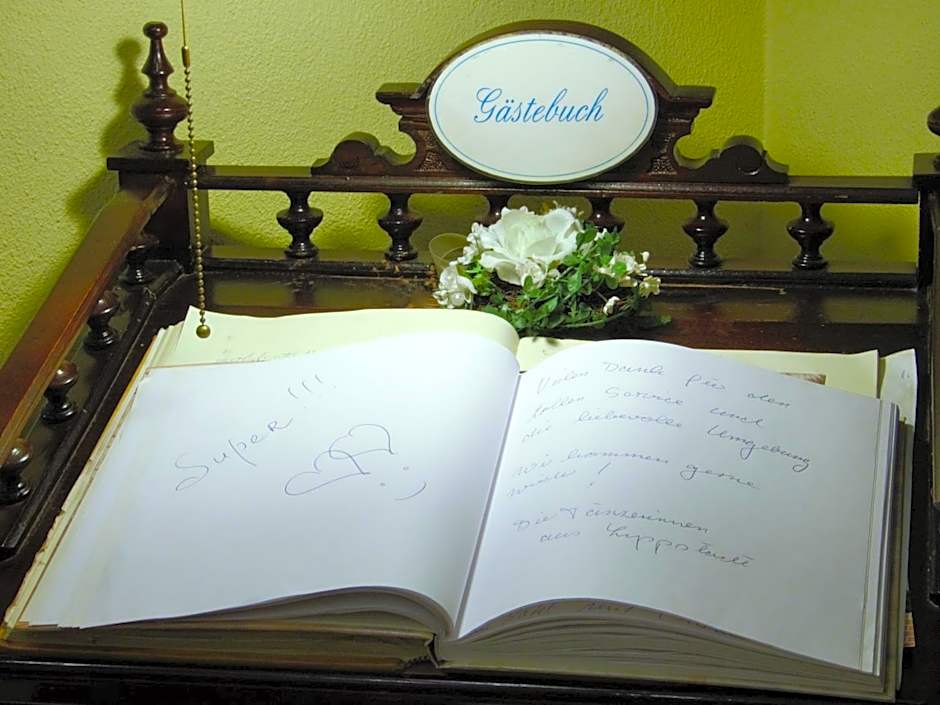 Gästebuch
Super !!!
Vielen Dank für den
tollen Service und
die liebevolle Umgebung
wir kommen gerne
wieder !
Die Tänzerinnen
aus Lippstadt